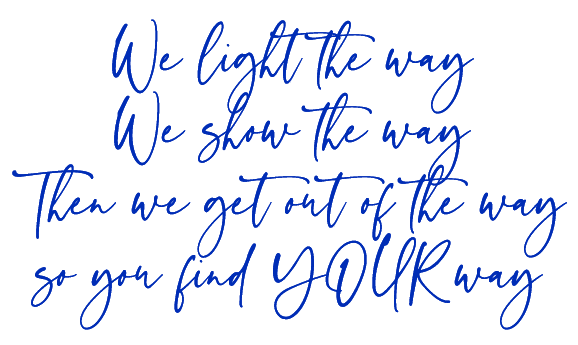 We light the way
We show the way
Then we get out of the way
so you find YOUR way